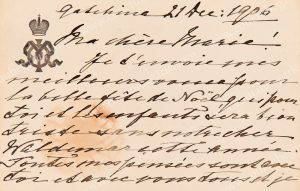 Gatchina 21 Déc: 1906
Ma chère Marie!
Je t'envoie mes
meilleurs voeux pour
la belle fête de Noël qui pour
toi et tes enfants sera bien
triste sans notre cher
Waldemar cette année.
Toutes mes pensées sont avec
toi et avec vous tous et je